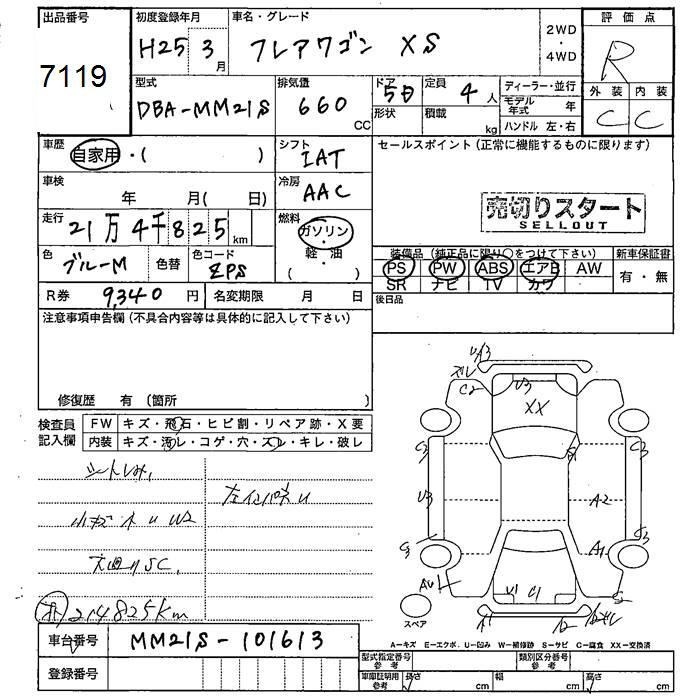 出品番号
7119
初度登録年月
H25 3月
車名・グレード
フレアワゴン XS
2WD
・
4WD
評価点
R
外装 内装
C C
型式
DBA-MM21S
排気量
660
CC
ドア
5D
形状
定員
4人
積載
kg
ディーラー・並行
モデル年式 年
ハンドル 左・右
車歴
自家用・( )
シフト
IAT
セールスポイント(正常に機能するものに限ります)
車検
年 月( 日)
冷房
AAC
売切りスタート
SELLOUT
走行
21万4千825km
燃料
ガソリン
・
軽・油
( )
色
ブルーM
色替
色コード
ZPS
装備品(純正品に限り〇をつけて下さい)
新車保証書
PS PW ABS エアB AW
SR ナビ TV カワ
有・無
R券 9,340円
名変期限 月 日
後日品
注意事項申告欄(不具合内容等は具体的に記入して下さい)
修復歴 有(箇所 )
検査員
記入欄
FW キズ・飛石・ヒビ割・リペア跡・X要
内装 キズ・汚レ・コゲ・穴・スレ・キレ・破レ
214825km
車台番号
MM21S-101613
登録番号
UA3
C2
U3
XX
C2
C3
U3
A2
C3
S3
A1
U1
C1
S2
スペア
A-キズ E-エクボ U-凹み W-補修跡 S-サビ C-腐食 XX-交換済
型式指定番号
参考
類別区分番号
参考
車庫証明用
参考
長さ cm
幅 cm
高さ cm